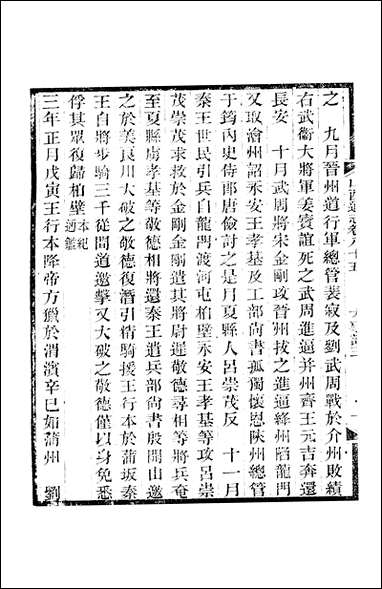 之　九月晉州道行軍總管裴寂及劉武周戰於介州敗績
右武衞大將軍姜寶誼死之武周進逼幷州齊王元吉奔還
長安　十月武周將宋金剛攻晉州拔之進逼絳州陷龍門
又取澮州詔永安王孝基及工部尚書孤獨懷恩陝州總管
于筠內史侍郎唐儉討之是月夏縣人呂崇茂反　十一月
秦王世民引兵自龍門渡河屯柏壁永安王孝基等攻呂崇
茂崇茂求救於金剛金剛遣其將尉遲敬德尋相等將兵奄
至夏縣虜孝基等敬德相將還秦王遣兵部尚書殷開山邀
之於美良川大破之敬德復潛引精騎援王行本於蒲坂秦
王自將步騎三千從間道邀擊又大破之敬德僅以身免悉
俘其眾復歸柏壁本紀通鑑
三年正月戊寅王行本降帝方獵於渭濱辛巳如蒲州　劉